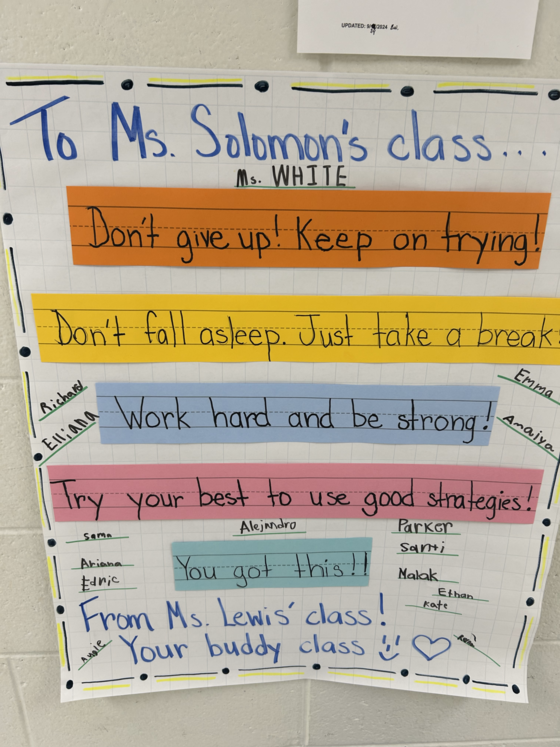 UPDATED:
To Ms. Solomon's class...
Ms. WHITE
Don't give up! Keep on trying!
Don't fall asleep. Just take a break
Richard
Emma
Elliana
Work hard and be strong!
Amaiya
Try your best to use good strategies!
Sama
Alejandro
Parker
Santi
Ariana
You got this!!
Malak
Edric
Ethan
Kate
From Ms. Lewis' class!
Your buddy class